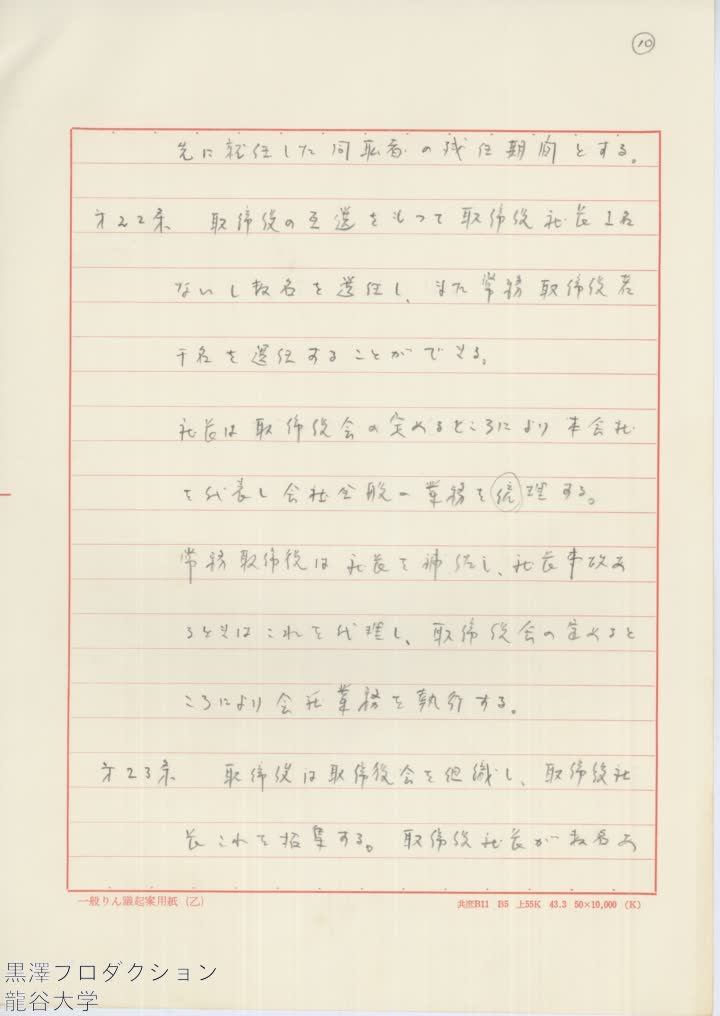 ⑩
先に就任した同取者の残任期間とする。
第22条 取締役の互選をもつて取締役社長1名
ないし数名を選任し、また常務取締役若
干名を選任することができる。
社長は取締役会の定めるところにより本会社
を代表し会社全般の業務を統理する。
常務取締役は社長を補佐し、社長事故あ
るときはこれを代理し、取締役会の定めると
ころにより会社業務を執行する。
第23条 取締役は取締役会を組織し、取締役社
長これを招集する。取締役社長が数名あ
一般りん議起案用紙(乙)
共庶B11 B5 上55K 43.3 50×10,000 (K)
黒澤プロダクション
龍谷大学